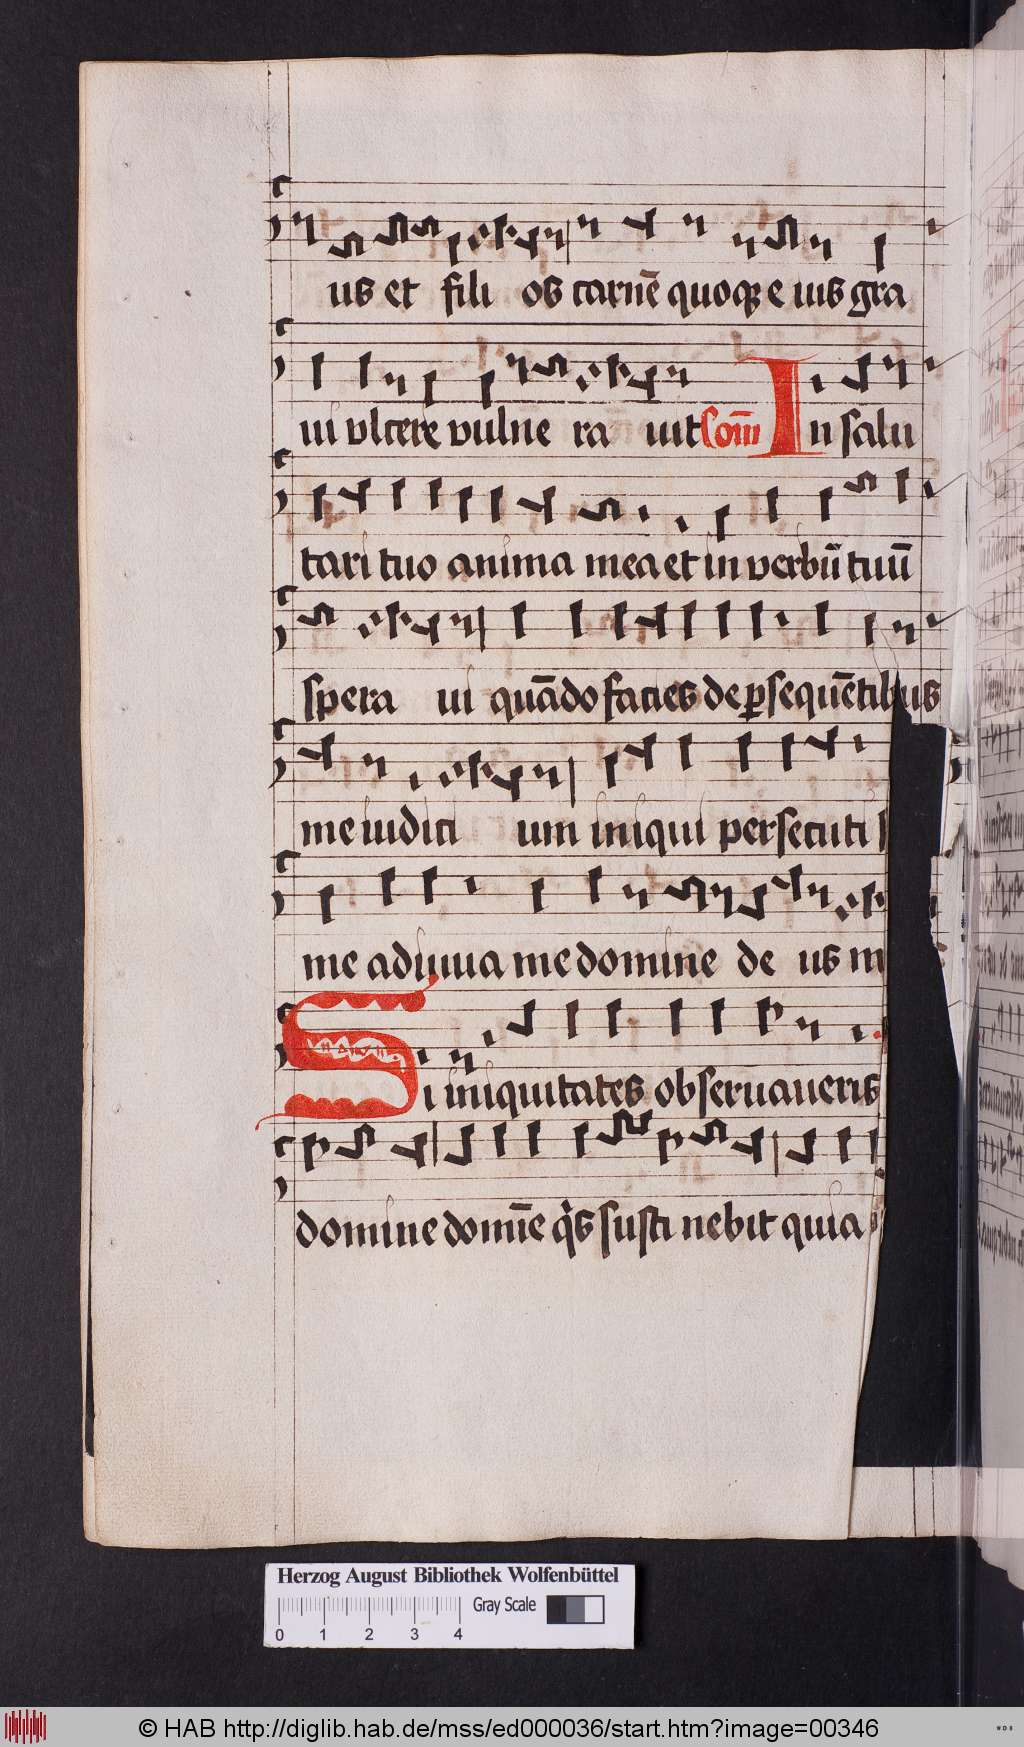 us et fili os carnē quoqꝫ e ius gra
ui vlcere vulne ra uit Com̄ In salu
tari tuo anima mea et in verbū tuū
spera ui quādo facies de ꝑsequētibus
me iudici um iniqui persecuti s
me adiuua me domine de us m
Si iniquitates obseruaueris
domine domīe q̇s susti nebit quia
Herzog August Bibliothek Wolfenbüttel
Gray Scale
0 1 2 3 4
© HAB http://diglib.hab.de/mss/ed000036/start.htm?image=00346